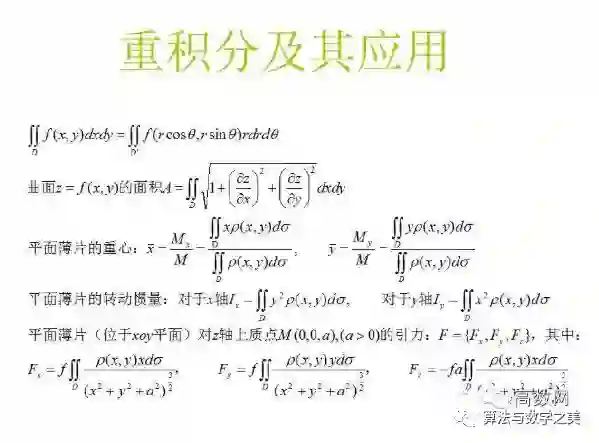 重积分及其应用
∬_D f(x,y)dxdy = ∬_{D'} f(r cosθ, r sinθ)rdrdθ
曲面z = f(x,y)的面积A = ∬_D √(1+(∂z/∂x)²+(∂z/∂y)²) dxdy
平面薄片的重心：x̄ = M_x/M = ∬_D xρ(x,y)dσ / ∬_D ρ(x,y)dσ, ȳ = M_y/M = ∬_D yρ(x,y)dσ / ∬_D ρ(x,y)dσ
平面薄片的转动惯量：对于x轴I_x = ∬_D y²ρ(x,y)dσ, 对于y轴I_y = ∬_D x²ρ(x,y)dσ
平面薄片（位于xoy平面）对z轴上质点M(0,0,a),(a>0)的引力：F = {F_x,F_y,F_z}，其中：
F_x = f∬_D ρ(x,y)xdσ/(x²+y²+a²)^{3/2}, F_y = f∬_D ρ(x,y)ydσ/(x²+y²+a²)^{3/2}, F_z = -fa∬_D ρ(x,y)xdσ/(x²+y²+a²)^{3/2}
高数网
算法与数学之美